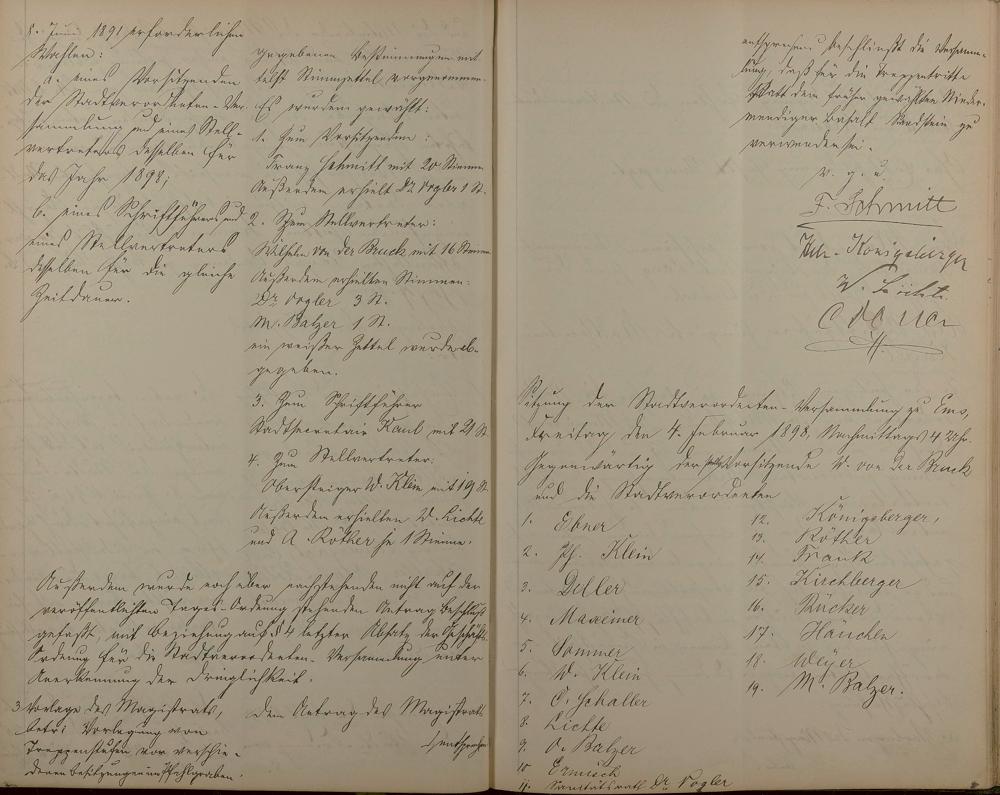 8. Juni 1891 erforderlichen
Wahlen:
a. eines Vorsitzenden
der Stadtverordneten-Ver-
sammlung und eines Stell-
vertreters desselben für
das Jahr 1898;
b. eines Schriftführers und
eines Stellvertreters
desselben für die gleiche
Zeitdauer.
gegebenen Bestimmungen mit
telst Stimmzettel vorgenommen.
Es wurden gewählt:
1. Zum Vorsitzenden:
Franz Schmitt mit 20 Stimmen
Außerdem erhielt Dr. Vogler 1 St.
2. Zum Stellvertreter:
Wilhelm von der Bruck mit 16 Stimmen
Außerdem erhielten Stimmen:
Dr. Vogler 3 St.
M. Balzer 1 St.
ein weißer Zettel wurde ab-
gegeben.
3. Zum Schriftführer
Stadtsecretair Kaul mit 21 St.
4. Zum Stellvertreter:
Obersteiger W. Klein mit 19 St.
Außerdem erhielten W. Lichte
und A. Röther je 1 Stimme.
Außerdem wurde noch über nachstehenden nicht auf der
veröffentlichten Tages-Ordnung stehenden Antrag Beschluß
gefaßt, mit Beziehung auf § 4 letzter Absatz der Geschäfts-
Ordnung für die Stadtverordneten-Versammlung unter
Anerkennung der Dringlichkeit.
3 Vorlage des Magistrats,
betr. Vorlegung von
Treppenstufen vor verschie-
denen Besitzungen im Pfahlgraben.
Dem Antrag des Magistrats
entsprechend
entsprechend beschließt die Versamm-
lung, daß für die Treppentritte
statt dem früher gewählten Nieder-
mendiger Basalt Sandstein zu
verwenden sei.
v. g. u.
F. Schmitt
Königsberger
W. Lichte
Sitzung der Stadtverordneten-Versammlung zu Ems,
Freitag, den 4. Februar 1898, Nachmittags 4 Uhr.
Gegenwärtig der Vorsitzende W. von der Bruck
und die Stadtverordneten
1. Ebner
2. Ph. Klein
3. Deller
4. Maxeiner
5. Sommer
6. W. Klein
7. C. Schaller
8. Lichte
9. O. Balzer
10 Ermisch
11. Sanitätsrath Dr. Vogler
12. Königsberger,
13. Röther
14. Frank
15. Kirchberger
16. Rücker
17. Hänchen
18. Weyer
19. M. Balzer.